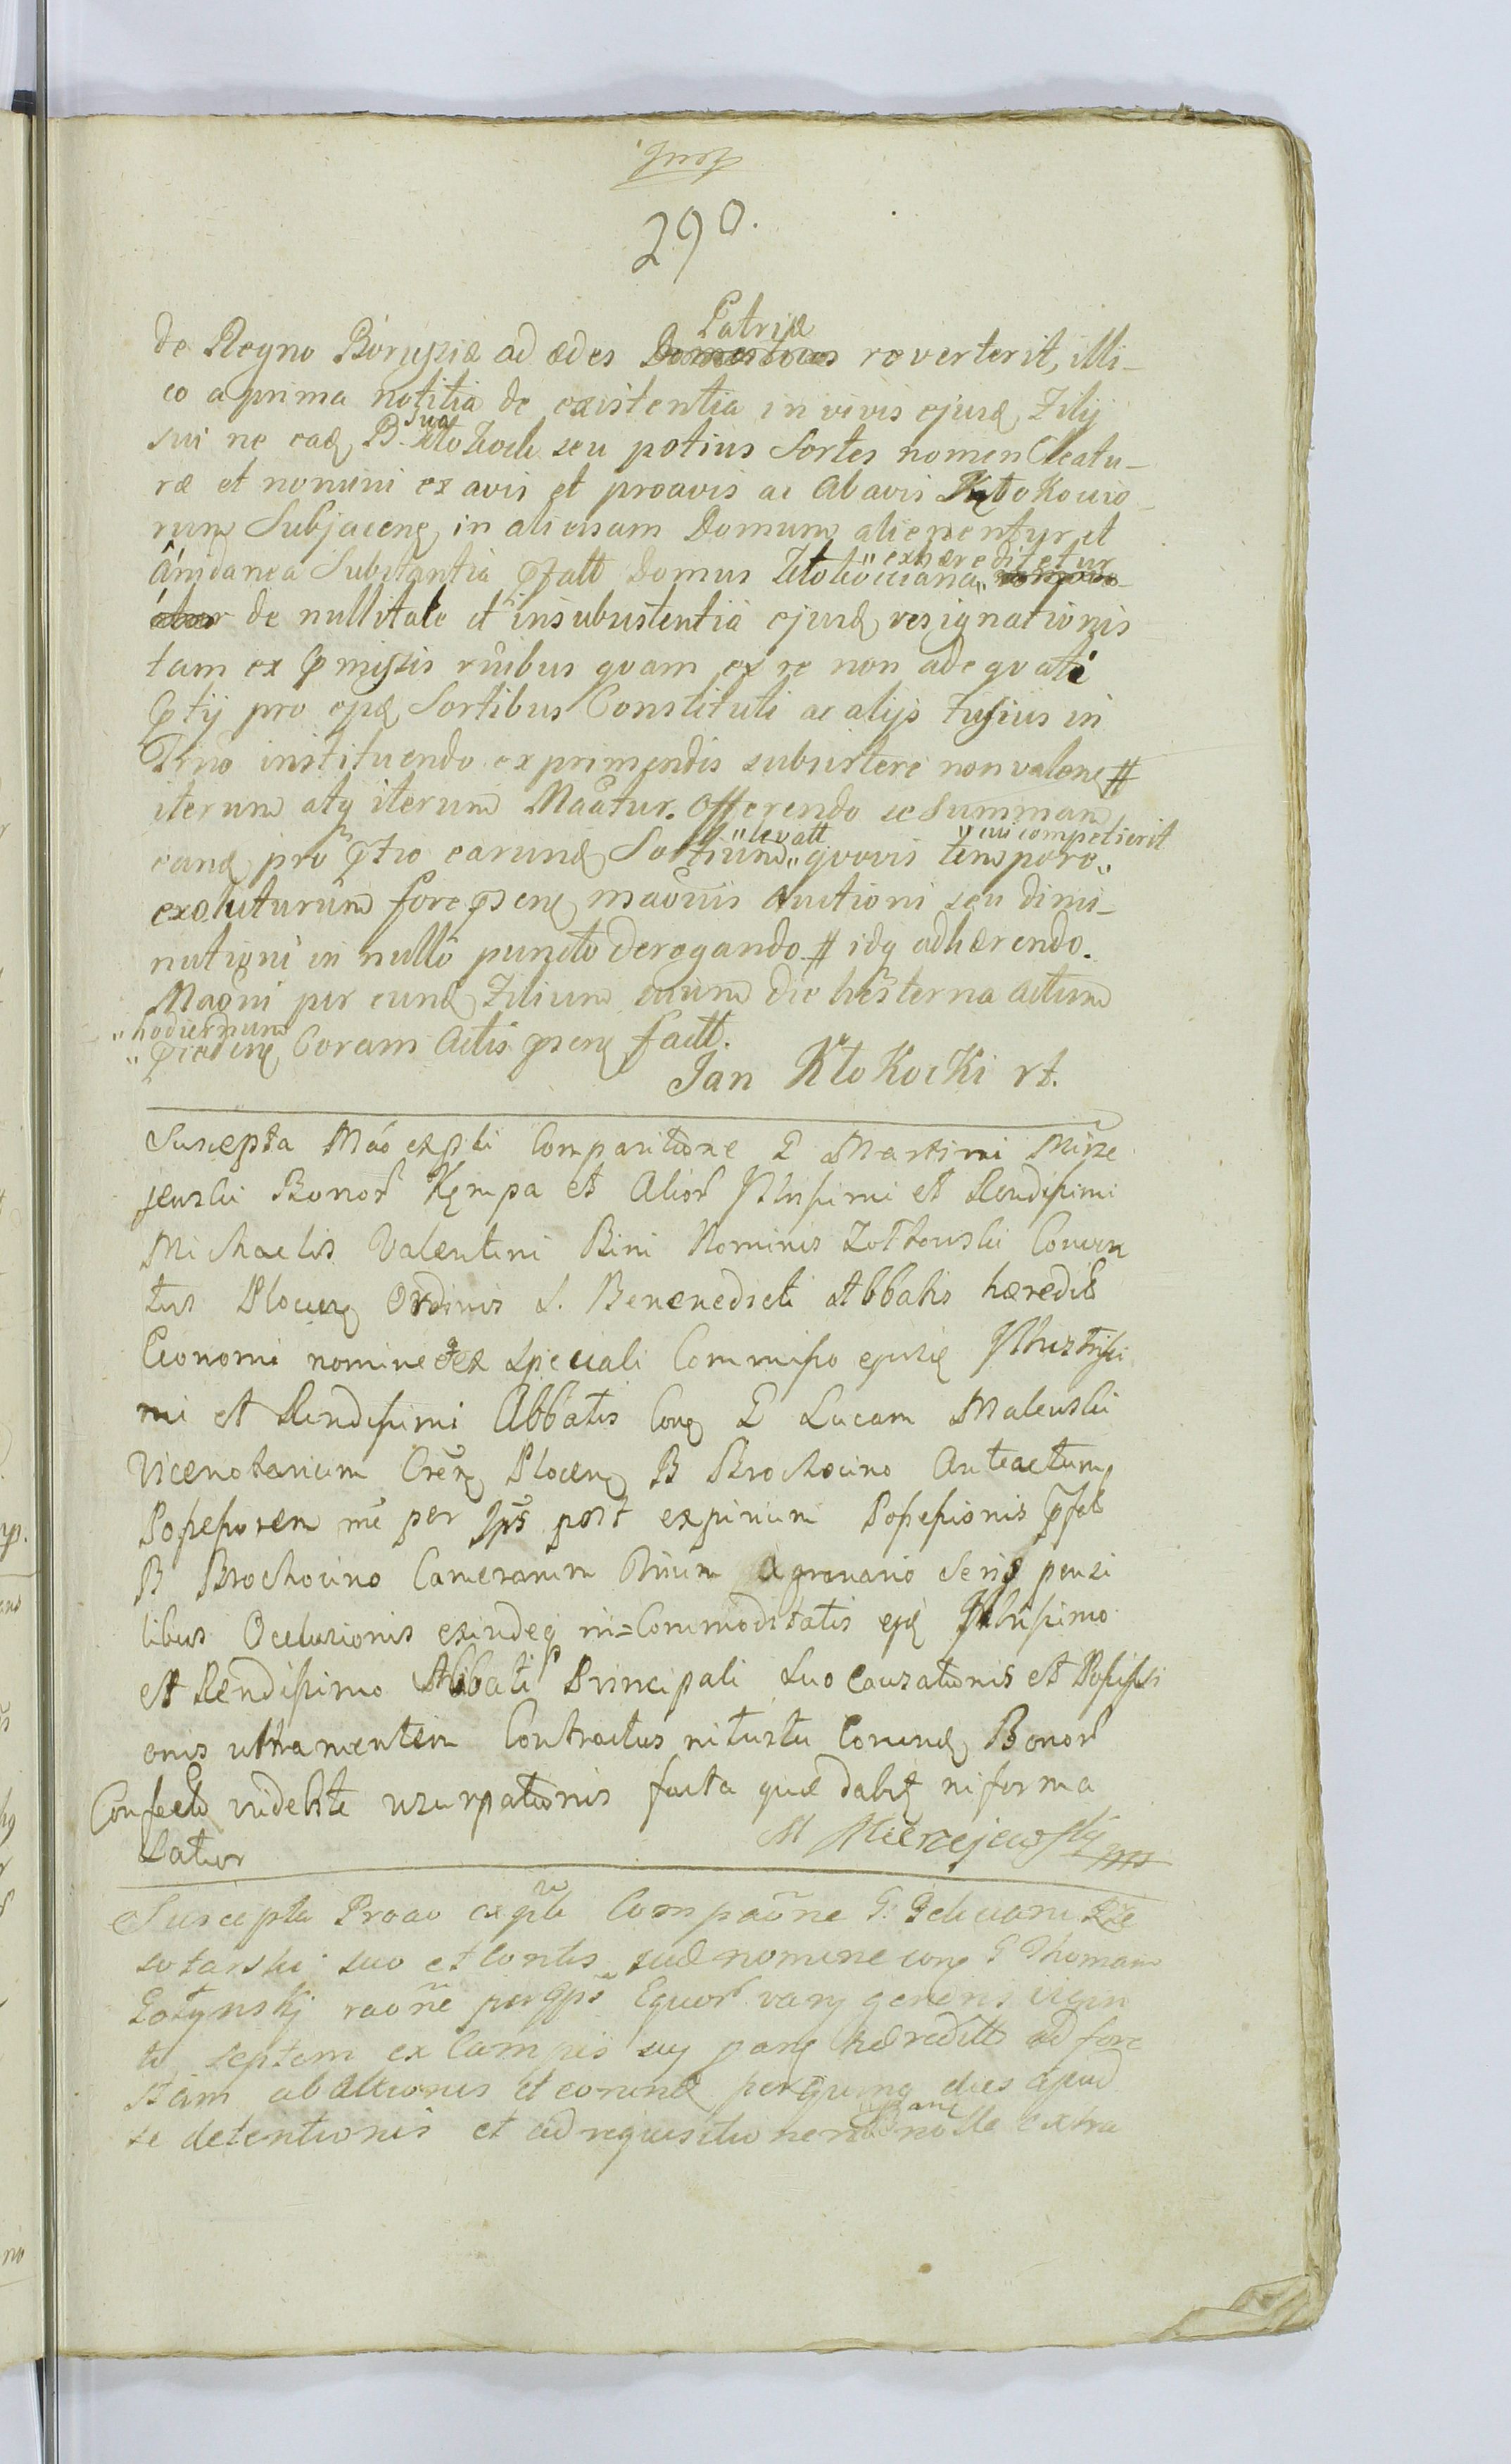 290.
de Regno Borussiæ ad ædes Patriæ reverterit, illi-
co a prima notitia de existentia in vivis ejusd Filij
sui ne ead B. sua Kłokock seu potius Sortes nomen Cleatu-
ræ et nomini ex avis et proavis ac abavis Kłokocio-
rum Subjacen in alienam Domum alienentur et
Substantia Domus Kłokocciana „exhæreditetur
de nullitate et insubsistentia ejusd resignationis
tam ex pmissis rnibus quam ex re non adequati
ptij pro ejsd Sortibus Constituti ac alijs fusius in
Trno instituendo exprimendis subsistere non valen #
iterum atq iterum Maatur. Offerendo se summam
eand pro ptio earund Sortium „levatt quovis tempore „cui competierit
exoluturum fore psen maonis auctioni seu dimi-
nutioni in nullo puncto derogando # idq adhærendo.
Maoni per eund Filium suum die hesterna actum
„hodiernum
Coram Actis psen factt.
Jan Kłokocki rt.
Suscepta Mao expti Comparitione G Martini Mirze
jewski Bonor Kępa et Alior Illrissimi et Rendissimi
Michaelis Valentini Bini Nominis Zołtowski Conven
tus Plocen Ordinis S. Benenedicti Abbatis hæredis
Economi nomine ex Speciali Commisso ejusd Illustrissi
mi et Rendissimi Abbatis Con G Lucam Malewski
Vicenotarium Cren Plocen B Brochocino Anteactum
Possessorem me per Ips post expirium Possessionis pfat
B Brochocino Camerarum Trium a granario Seris pensi
libus Occlusionis exindeq in=Commoditatis ejsd Illrissimo
et Rendissimo Abbati Principali Suo Causationis et Possessi
onis ultra mentem Contractus intuitu Eorund Bonor
Confecti indebite usurpationis facta quæ dabit in forma
Latior
M Mierzejewski mp
Suscepta Prao expti Compaone G. Feliciani Rze
szotarski suo et Contis suæ nomine con G Thomam
Gołynskj raone per Ips Equor varij generis vigin
ti septem ex Campis vij pang hæreditt ad fore
stam abactionis et eorund per quinq dies apud
se detentionis et ad requisitionem nolle extra